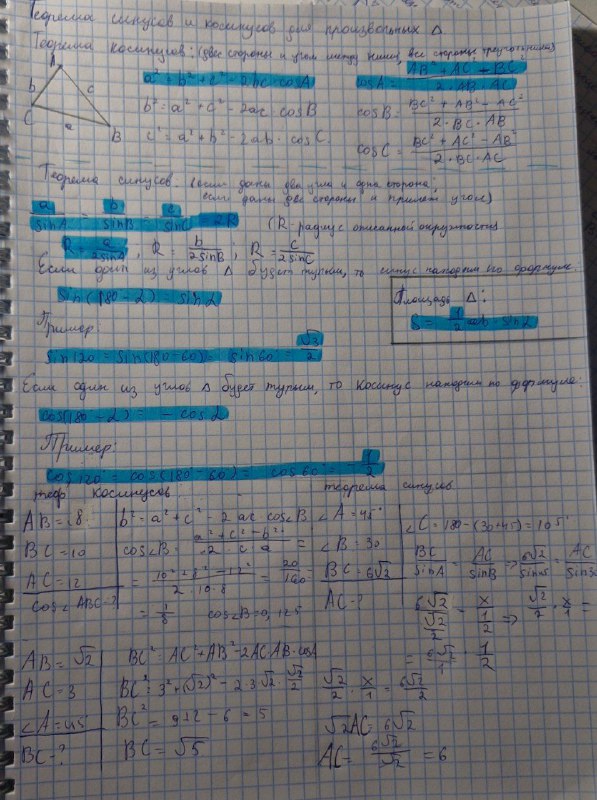 Теорема синусов и косинусов для произвольных Δ
Теорема косинусов: (две стороны и угол между ними, все стороны треугольника)
A
b
c
C
a
B
a² = b² + c² - 2bc·cosA
b² = a² + c² - 2ac·cosB
c² = a² + b² - 2ab·cosC
cosA = (AB² + AC² - BC²) / (2·AB·AC)
cosB = (BC² + AB² - AC²) / (2·BC·AB)
cosC = (BC² + AC² - AB²) / (2·BC·AC)
Теорема синусов. (если даны два угла и одна сторона;
если даны две стороны и прилеж угол)
a/sinA = b/sinB = c/sinC = 2R (R-радиус описанной окружности)
R = a/2sinA, R = b/2sinB; R = c/2sinC
Если один из углов Δ будет тупым, то синус находим по формуле:
sin(180-α) = sinα
Площадь Δ:
S = 1/2 ab·sinα
Пример:
sin120 = sin(180-60) = sin60 = √3/2
Если один из углов Δ будет тупым, то косинус находим по формуле:
cos(180-α) = -cosα
Пример:
cos120 = cos(180-60) = cos60 = -1/2
теор. косинусов
AB = 8
BC = 10
AC = 12
cos∠ABC-?
b² = a² + c² - 2ac·cos∠B
cos∠B = (a² + c² - b²) / (2·c·a) =
= (10² + 8² - 12²) / (2·10·8) = 20/160 =
= 1/8 cos∠B = 0,125
AB = √2
AC = 3
∠A = 45
BC-?
BC² = AC² + AB² - 2AC·AB·cosA
BC² = 3² + (√2)² - 2·3·√2·√2/2
BC² = 9+2-6 = 5
BC = √5
теорема синусов
∠A = 45°
∠B = 30
BC = 6√2
AC-?
∠C = 180-(30+45) = 105°
BC/sinA = AC/sinB ⇒ 6√2/sin45 = AC/sin30
6√2/(√2/2) = x/(1/2) ⇒ √2/2 · x/1 =
= 6√2/1 · 1/2
√2/2 · x/1 = 6√2/2
√2AC = 6√2
AC = 6√2/√2 = 6